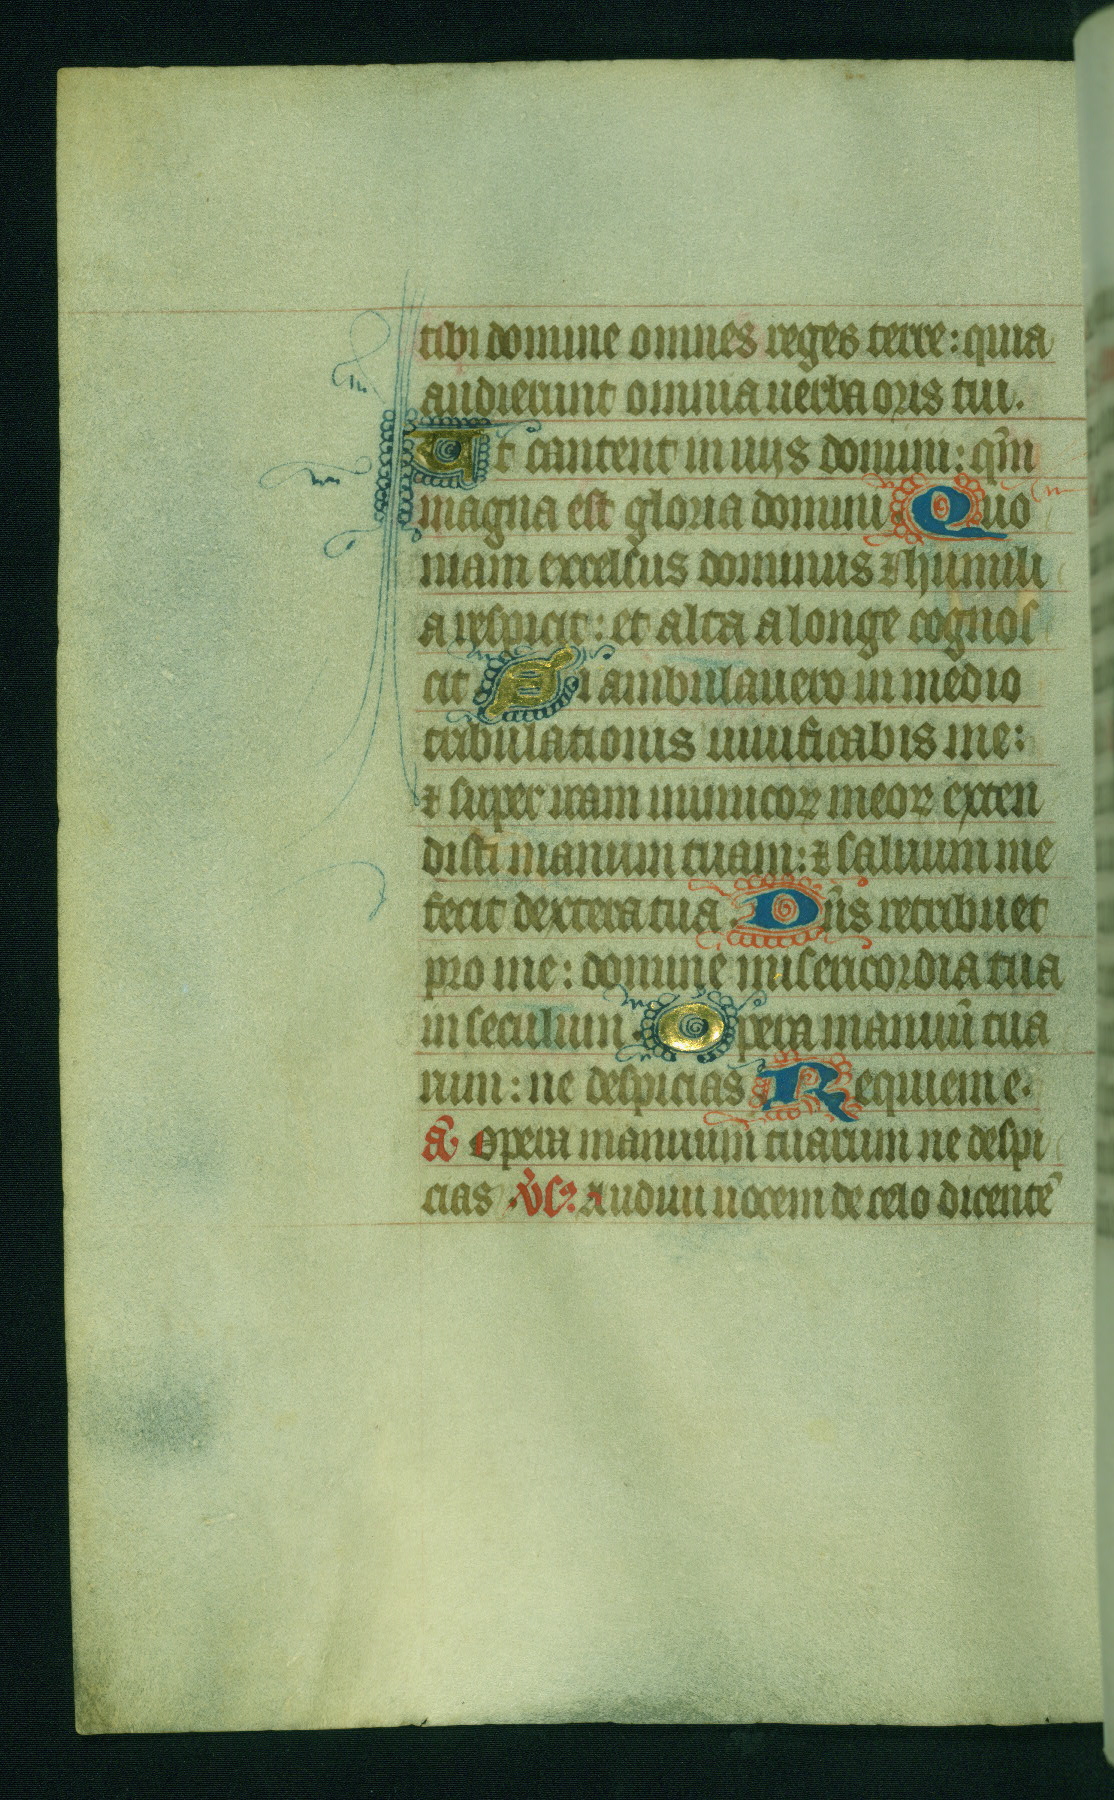 tibi domine omnes reges terre: quia
audierunt omnia uerba oris tui.
Et cantent in uijs domini: qm̄
magna est gloria domini Quo
niam excelsus dominus ⁊ humili
a respicit: et alta a longe cognos
cit Si ambulauero in medio
tribulationis uiuificabis me:
⁊ super iram inimicoꝝ meoꝝ exten
disti manum tuam: ⁊ saluum me
fecit dextera tua. Dn̄s retribuet
pro me: domine misericordia tua
in seculum. Opera manuū tua
rum: ne despicias Requiem e.
an̄ Opera manuum tuarum ne despi
cias. v̄s. Audiui uocem de celo dicentē